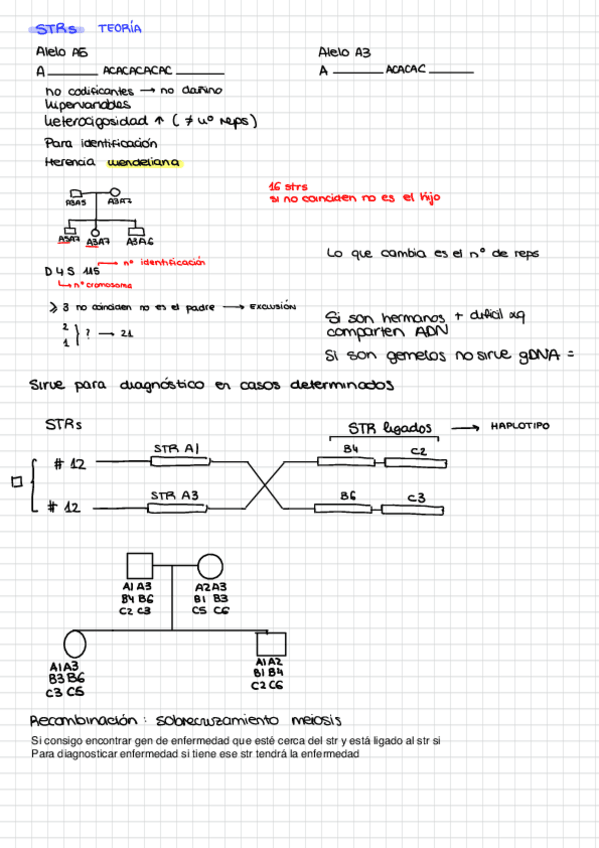 STRs TEORÍA
Alelo A6
Alelo A3
A ACACACACAC
A ACACAC
no codificantes → no dañino
hipervariables
heterocigosidad ↑ (≠ nº reps)
Para identificación
Herencia mendeliana
16 strs
si no coinciden no es el hijo
A3A5 A3A7
A5A7 A3A7 A3A6
Lo que cambia es el nº de reps
→ nº identificación
D4S 115
→ nº cromosoma
≥ 3 no coinciden no es el padre → EXCLUSIÓN
2
1
} ? → 21
Si son hermanos + difícil xq
comparten ADN
Si son gemelos no sirve gDNA =
Sirve para diagnóstico en casos determinados
STRs
STR ligados → HAPLOTIPO
# 12 STR A1 B4 C2
# 12 STR A3 B6 C3
A1 A3
B4 B6
C2 C3
A2 A3
B1 B3
C5 C6
A1 A3
B3 B6
C3 C5
A1 A2
B1 B4
C2 C6
Recombinación: sobrecruzamiento meiosis
Si consigo encontrar gen de enfermedad que esté cerca del str y está ligado al str si
Para diagnosticar enfermedad si tiene ese str tendrá la enfermedad